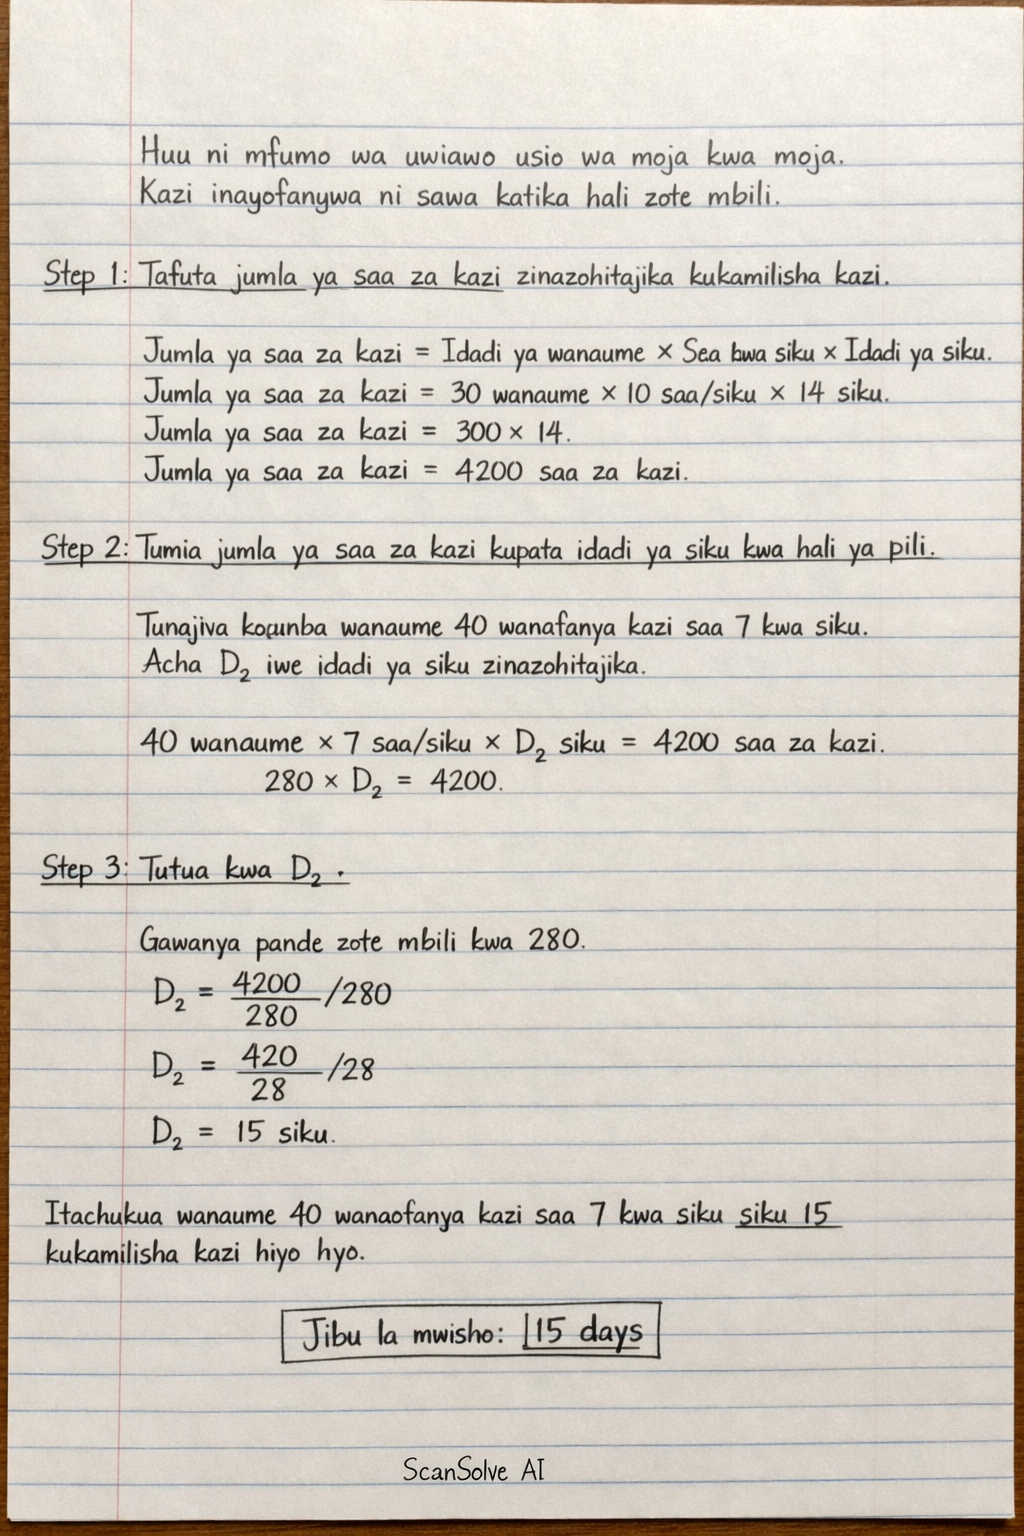 Huu ni mfumo wa uwiawo usio wa moja kwa moja.
Kazi inayofanywa ni sawa katika hali zote mbili.
Step 1: Tafuta jumla ya saa za kazi zinazohitajika kukamilisha kazi.
Jumla ya saa za kazi = Idadi ya wanaume × Sea bwa siku × Idadi ya siku.
Jumla ya saa za kazi = 30 wanaume × 10 saa/siku × 14 siku.
Jumla ya saa za kazi = 300 × 14.
Jumla ya saa za kazi = 4200 saa za kazi.
Step 2: Tumia jumla ya saa za kazi kupata idadi ya siku kwa hali ya pili.
Tunajiva wanaume 40 wanafanya kazi saa 7 kwa siku.
Acha D₂ iwe idadi ya siku zinazohitajika.
40 wanaume × 7 saa/siku × D₂ siku = 4200 saa za kazi.
280 × D₂ = 4200.
Step 3: Tutua kwa D₂.
Gawanya pande zote mbili kwa 280.
D₂ = 4200/280 /280
D₂ = 420/28 /28
D₂ = 15 siku.
Itachukua wanaume 40 wanaofanya kazi saa 7 kwa siku siku 15
kukamilisha kazi hiyo hyo.
Jibu la mwisho: |15 days
ScanSolve AI